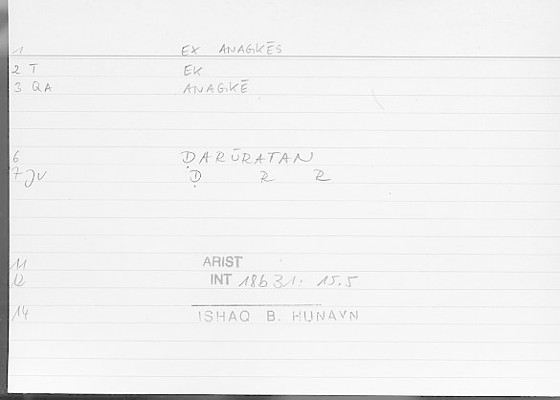 1 EX ANAGKĒS
2 T EK
3 QA ANAGKĒ
6 ḌARŪRATAN
7 JV Ḍ R R
11 ARIST
12 INT 18b31: 15.5
14 ISHAQ B. HUNAYN